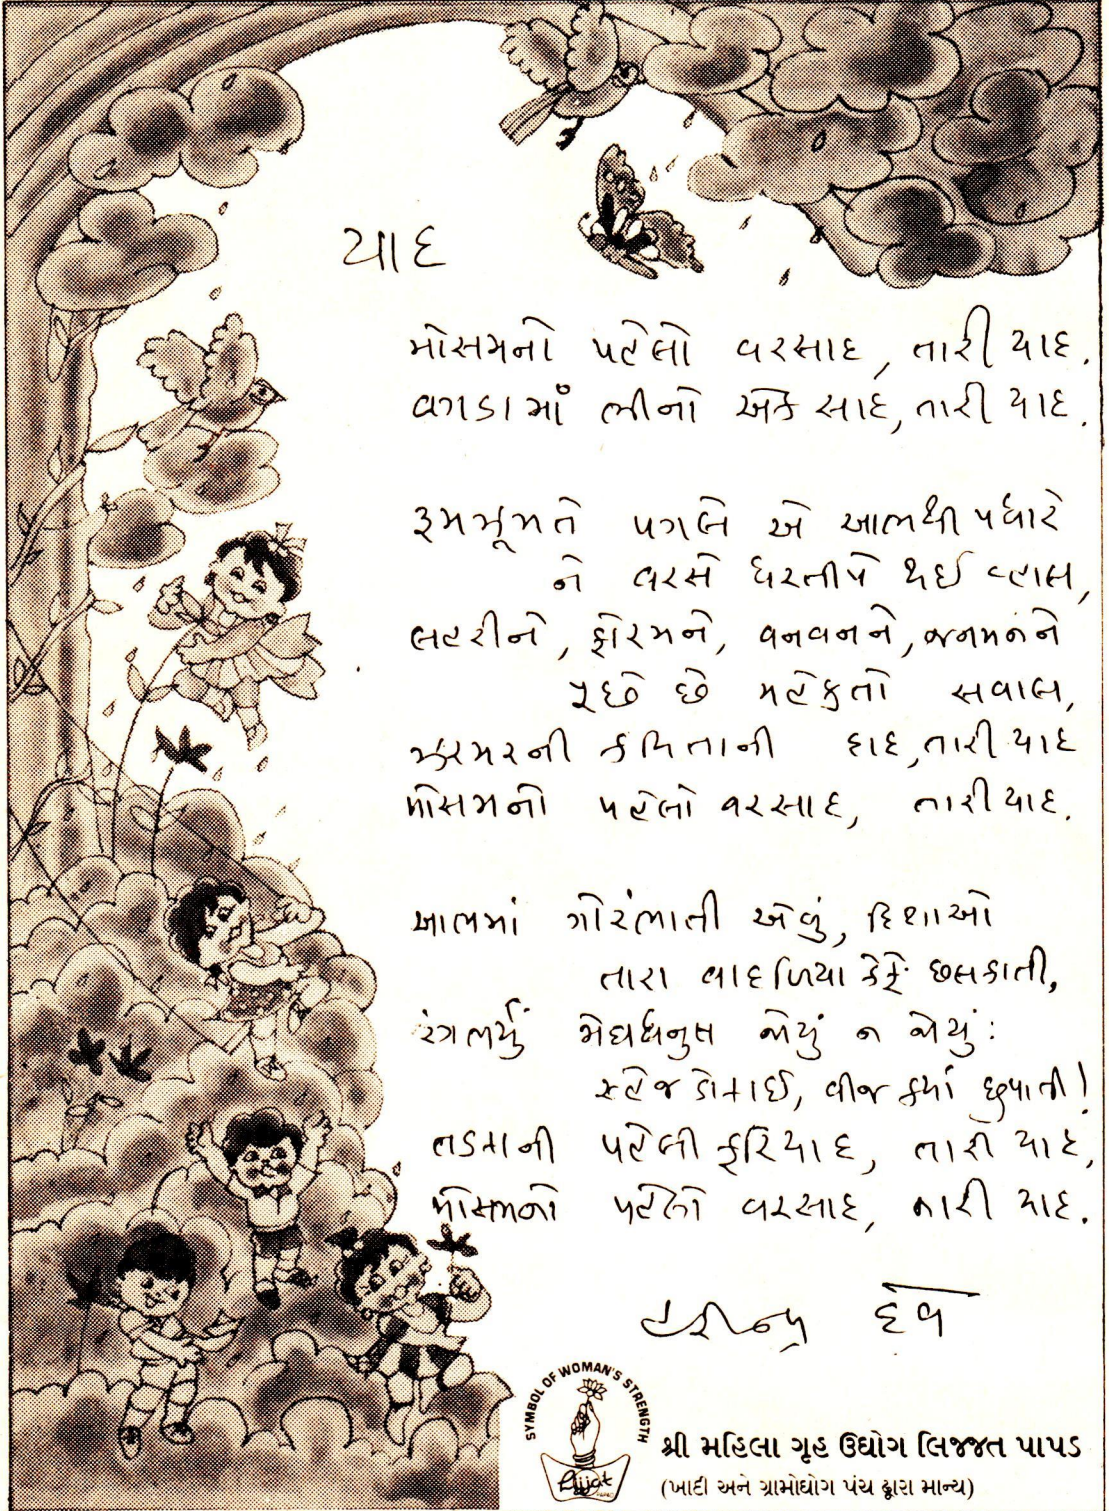 યાદ
મોસમનો પહેલો વરસાદ, તારી યાદ.
વગડામાઁ ભીનો એક સાદ, તારી યાદ.
રૂમઝૂમતે પગલે એ આભથી પધારે
ને વરસે ધરતીપે થઈ વ્હાલ,
લહરીને, ફોરમને, વનવનને, જનમનને
પૂછે છે મહેકતો સવાલ,
ઝરમરની કવિતાની દાદ, તારી યાદ
મોસમનો પહેલો વરસાદ, તારી યાદ.
આભમાં ગોરંભાતી એવું, દિશાઓ
તારા વાદળિયા કેફે છલકાતી,
રંગભર્યું મેઘધનુષ જોયું ન જોયું:
સ્હેજ ડોકાઈ, વીજ ક્યાં છુપાતી!
તડકાની પહેલી ફરિયાદ, તારી યાદ,
મોસમનો પહેલો વરસાદ, તારી યાદ.
હરીન્દ્ર દવે
SYMBOL OF WOMAN'S STRENGTH
Lijjat
શ્રી મહિલા ગૃહ ઉદ્યોગ લિજ્જત પાપડ
(ખાદી અને ગ્રામોદ્યોગ પંચ દ્વારા માન્ય)